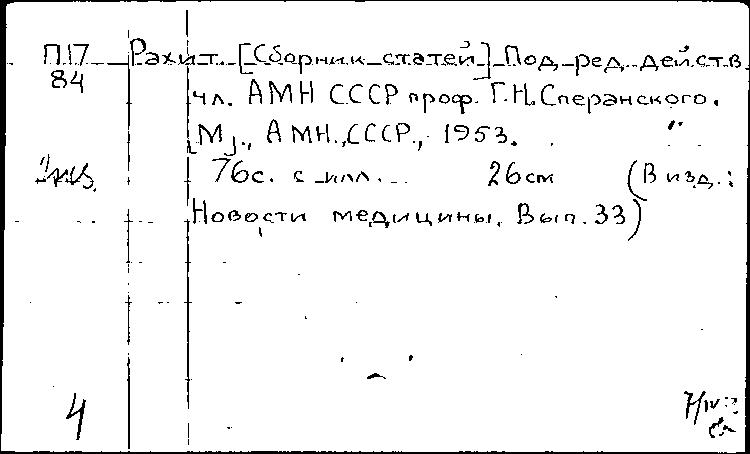 П17 Рахит. [Сборник статей] Под ред. действ.
84
чл. АМН СССР проф. Г.Н.Сперанского.
[М]., АМН.,СССР., 1953.
76с. с илл. 26см (В изд.:
Новости медицины. Вып.33)
4